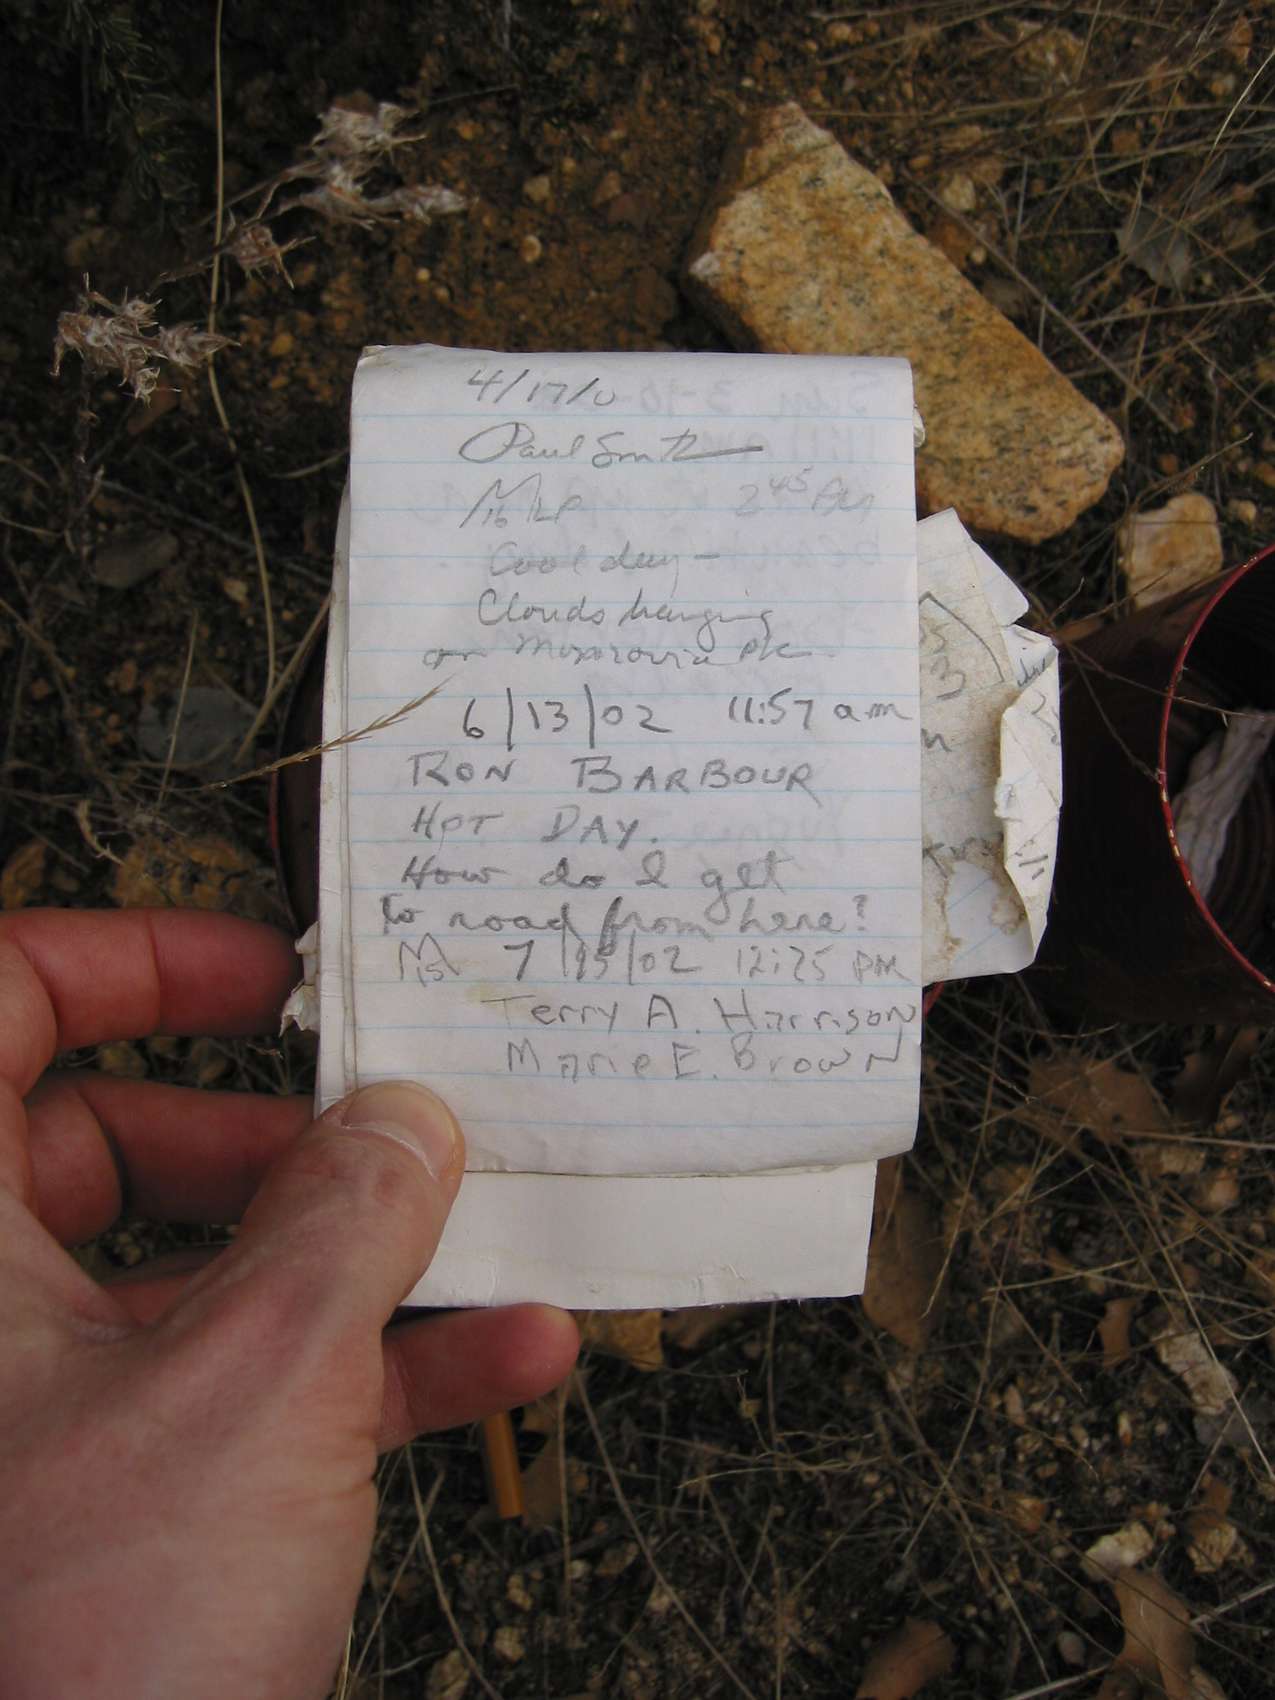 4/17/0
Paul Smith
2 45 PM
Cool day -
Clouds hanging
on Monrovia pk
6/13/02 11:57 am
RON BARBOUR
HOT DAY.
How do I get
to road from here?
7/25/02 12:25 PM
Terry A. Harrison
Marie E. Brown